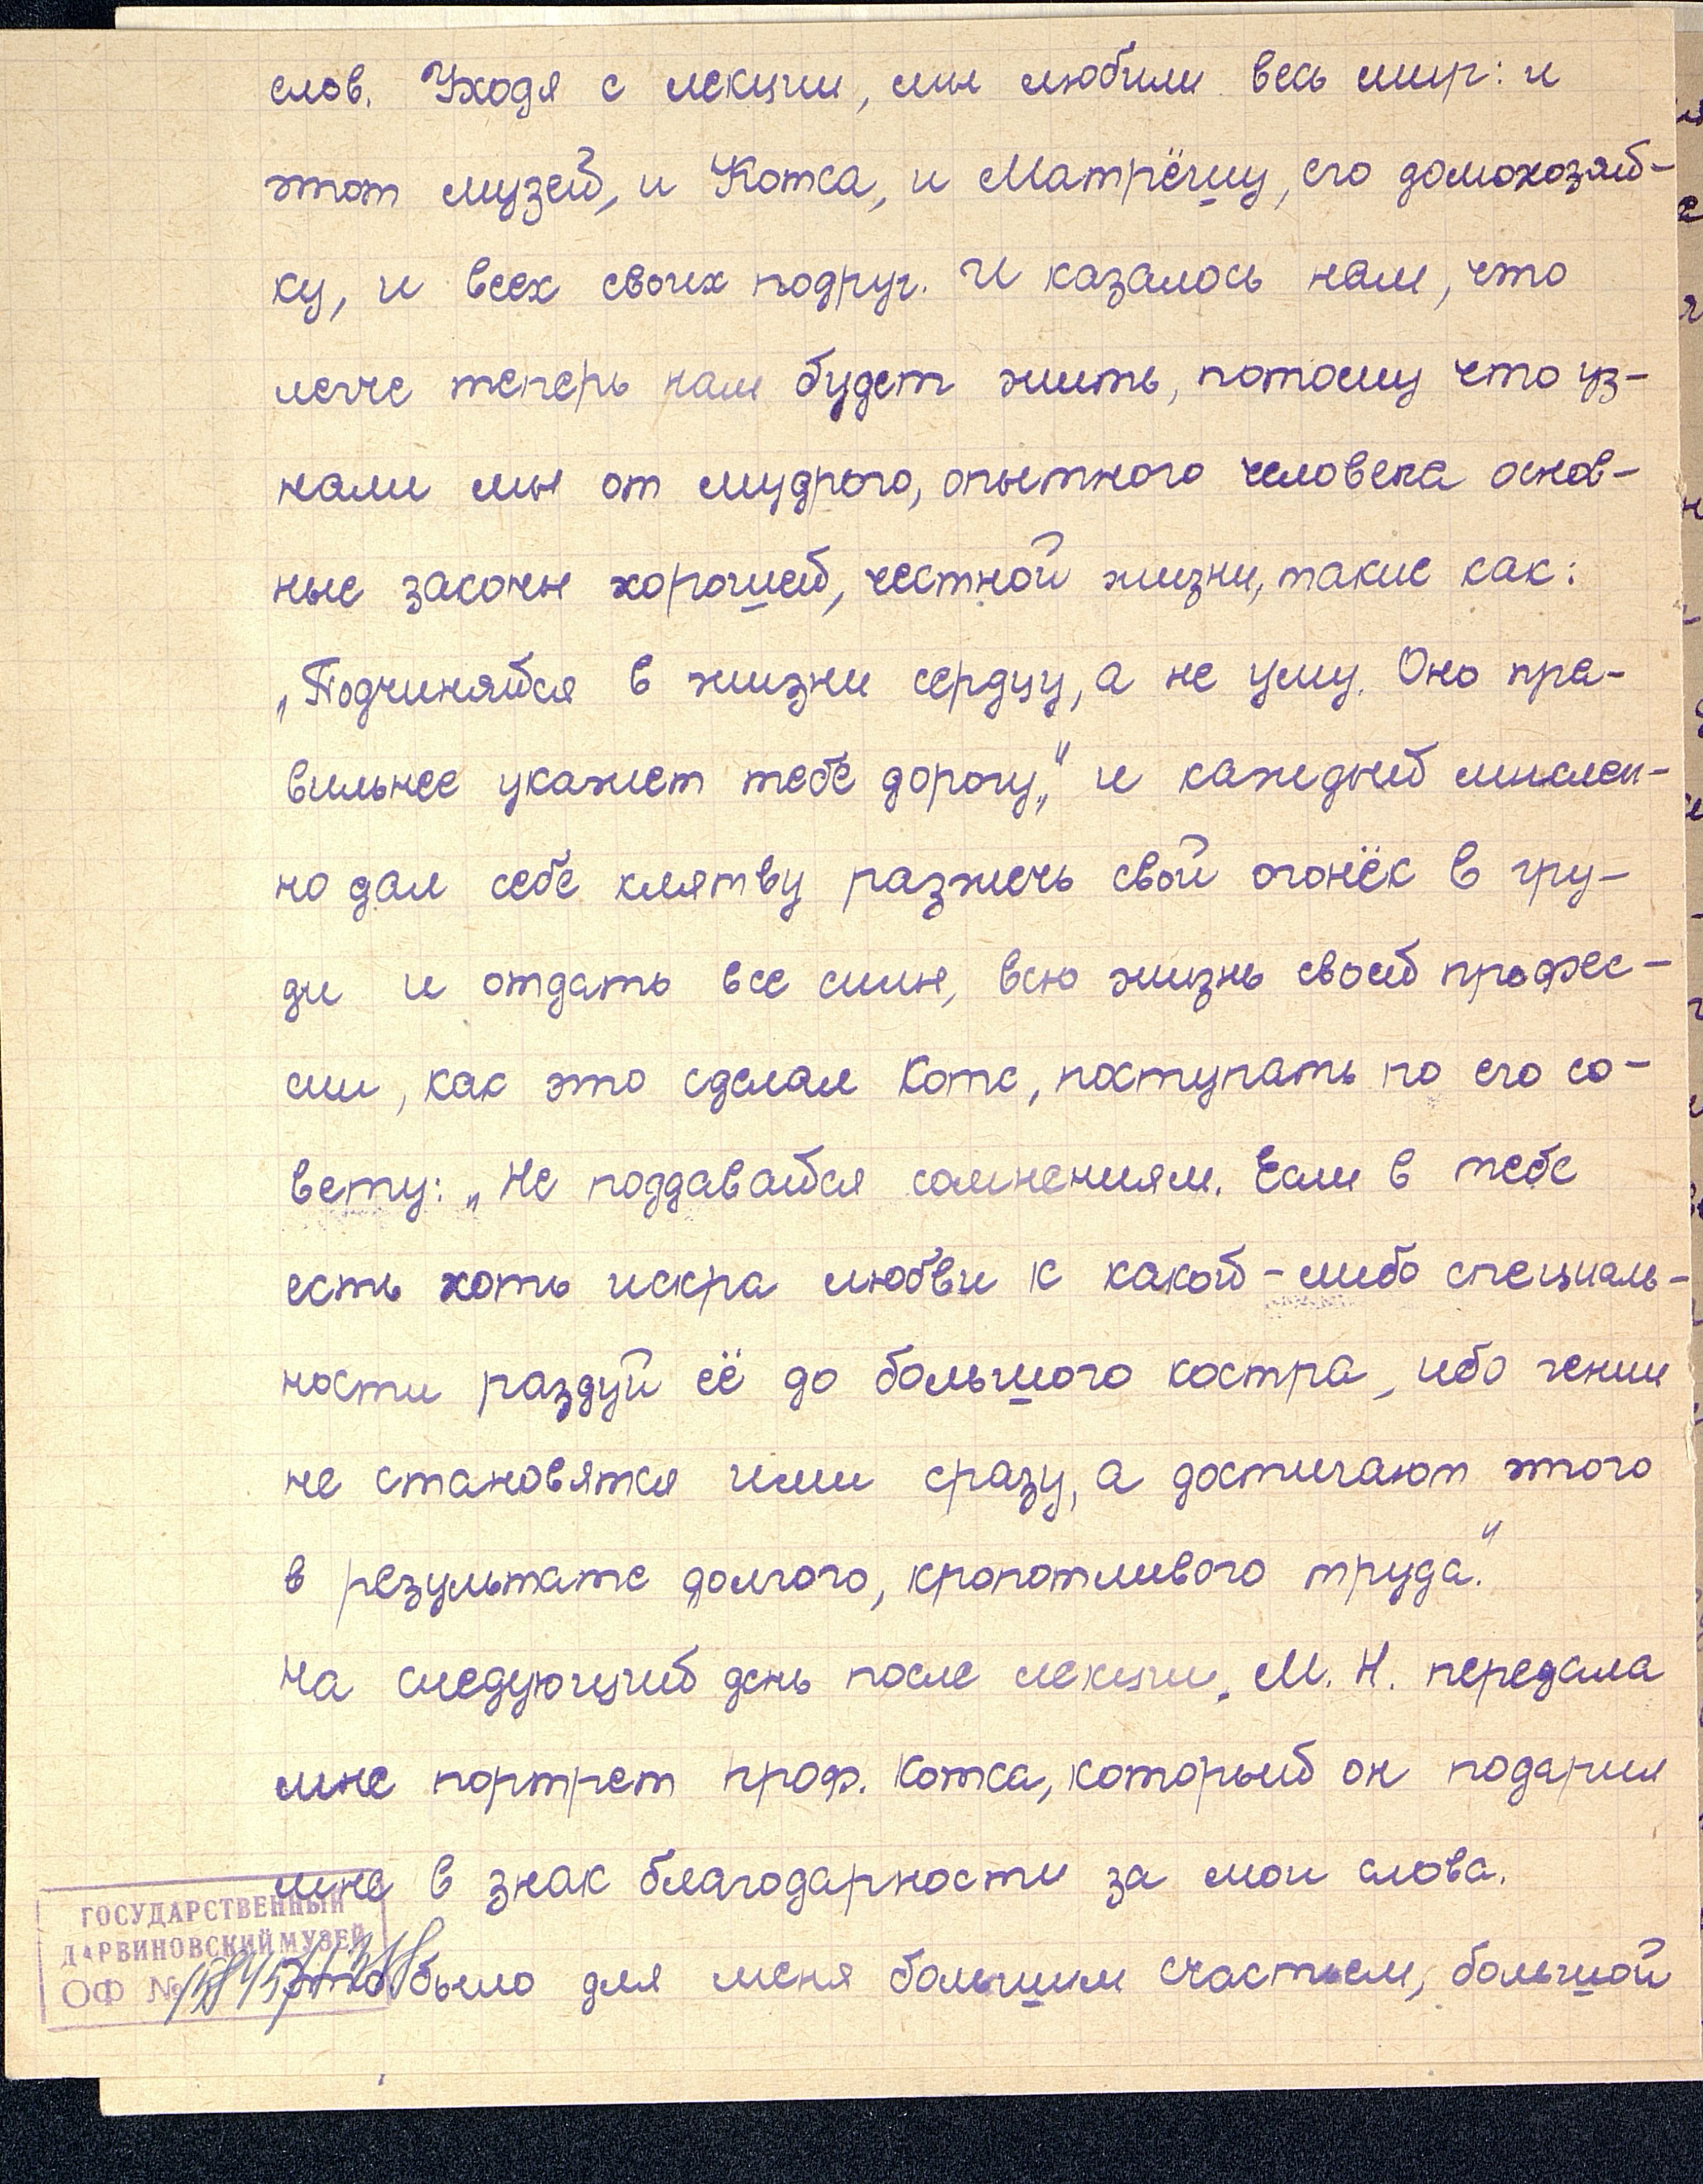 слов. Уходя с лекции, мы любили весь мир: и
этот музей, и Котса, и Матрёшу, его домохозяй-
ку, и всех своих подруг. И казалось нам, что
легче теперь нам будет жить, потому что уз-
нали мы от мудрого, опытного человека основ-
ные законы хорошей, честной жизни, такие как:
„Подчиняйся в жизни сердцу, а не уму. Оно пра-
вильнее укажет тебе дорогу," и каждый мыслен-
но дал себе клятву разжечь свой огонёк в гру-
ди и отдать все силы, всю жизнь своей профес-
сии, как это сделал Котс, поступать по его со-
вету: „Не поддавайся сомнениям. Если в тебе
есть хоть искра любви к какой-либо специаль-
ности раздуй её до большого костра, ибо гении
не становятся ими сразу, а достигают этого
в результате долгого, кропотливого труда."
На следующий день после лекции, М. Н. передала
мне портрет проф. Котса, который он подарил
мне в знак благодарности за мои слова.
Это было для меня большим счастьем, большой
ГОСУДАРСТВЕННЫЙ
ДАРВИНОВСКИЙ МУЗЕЙ
ОФ №